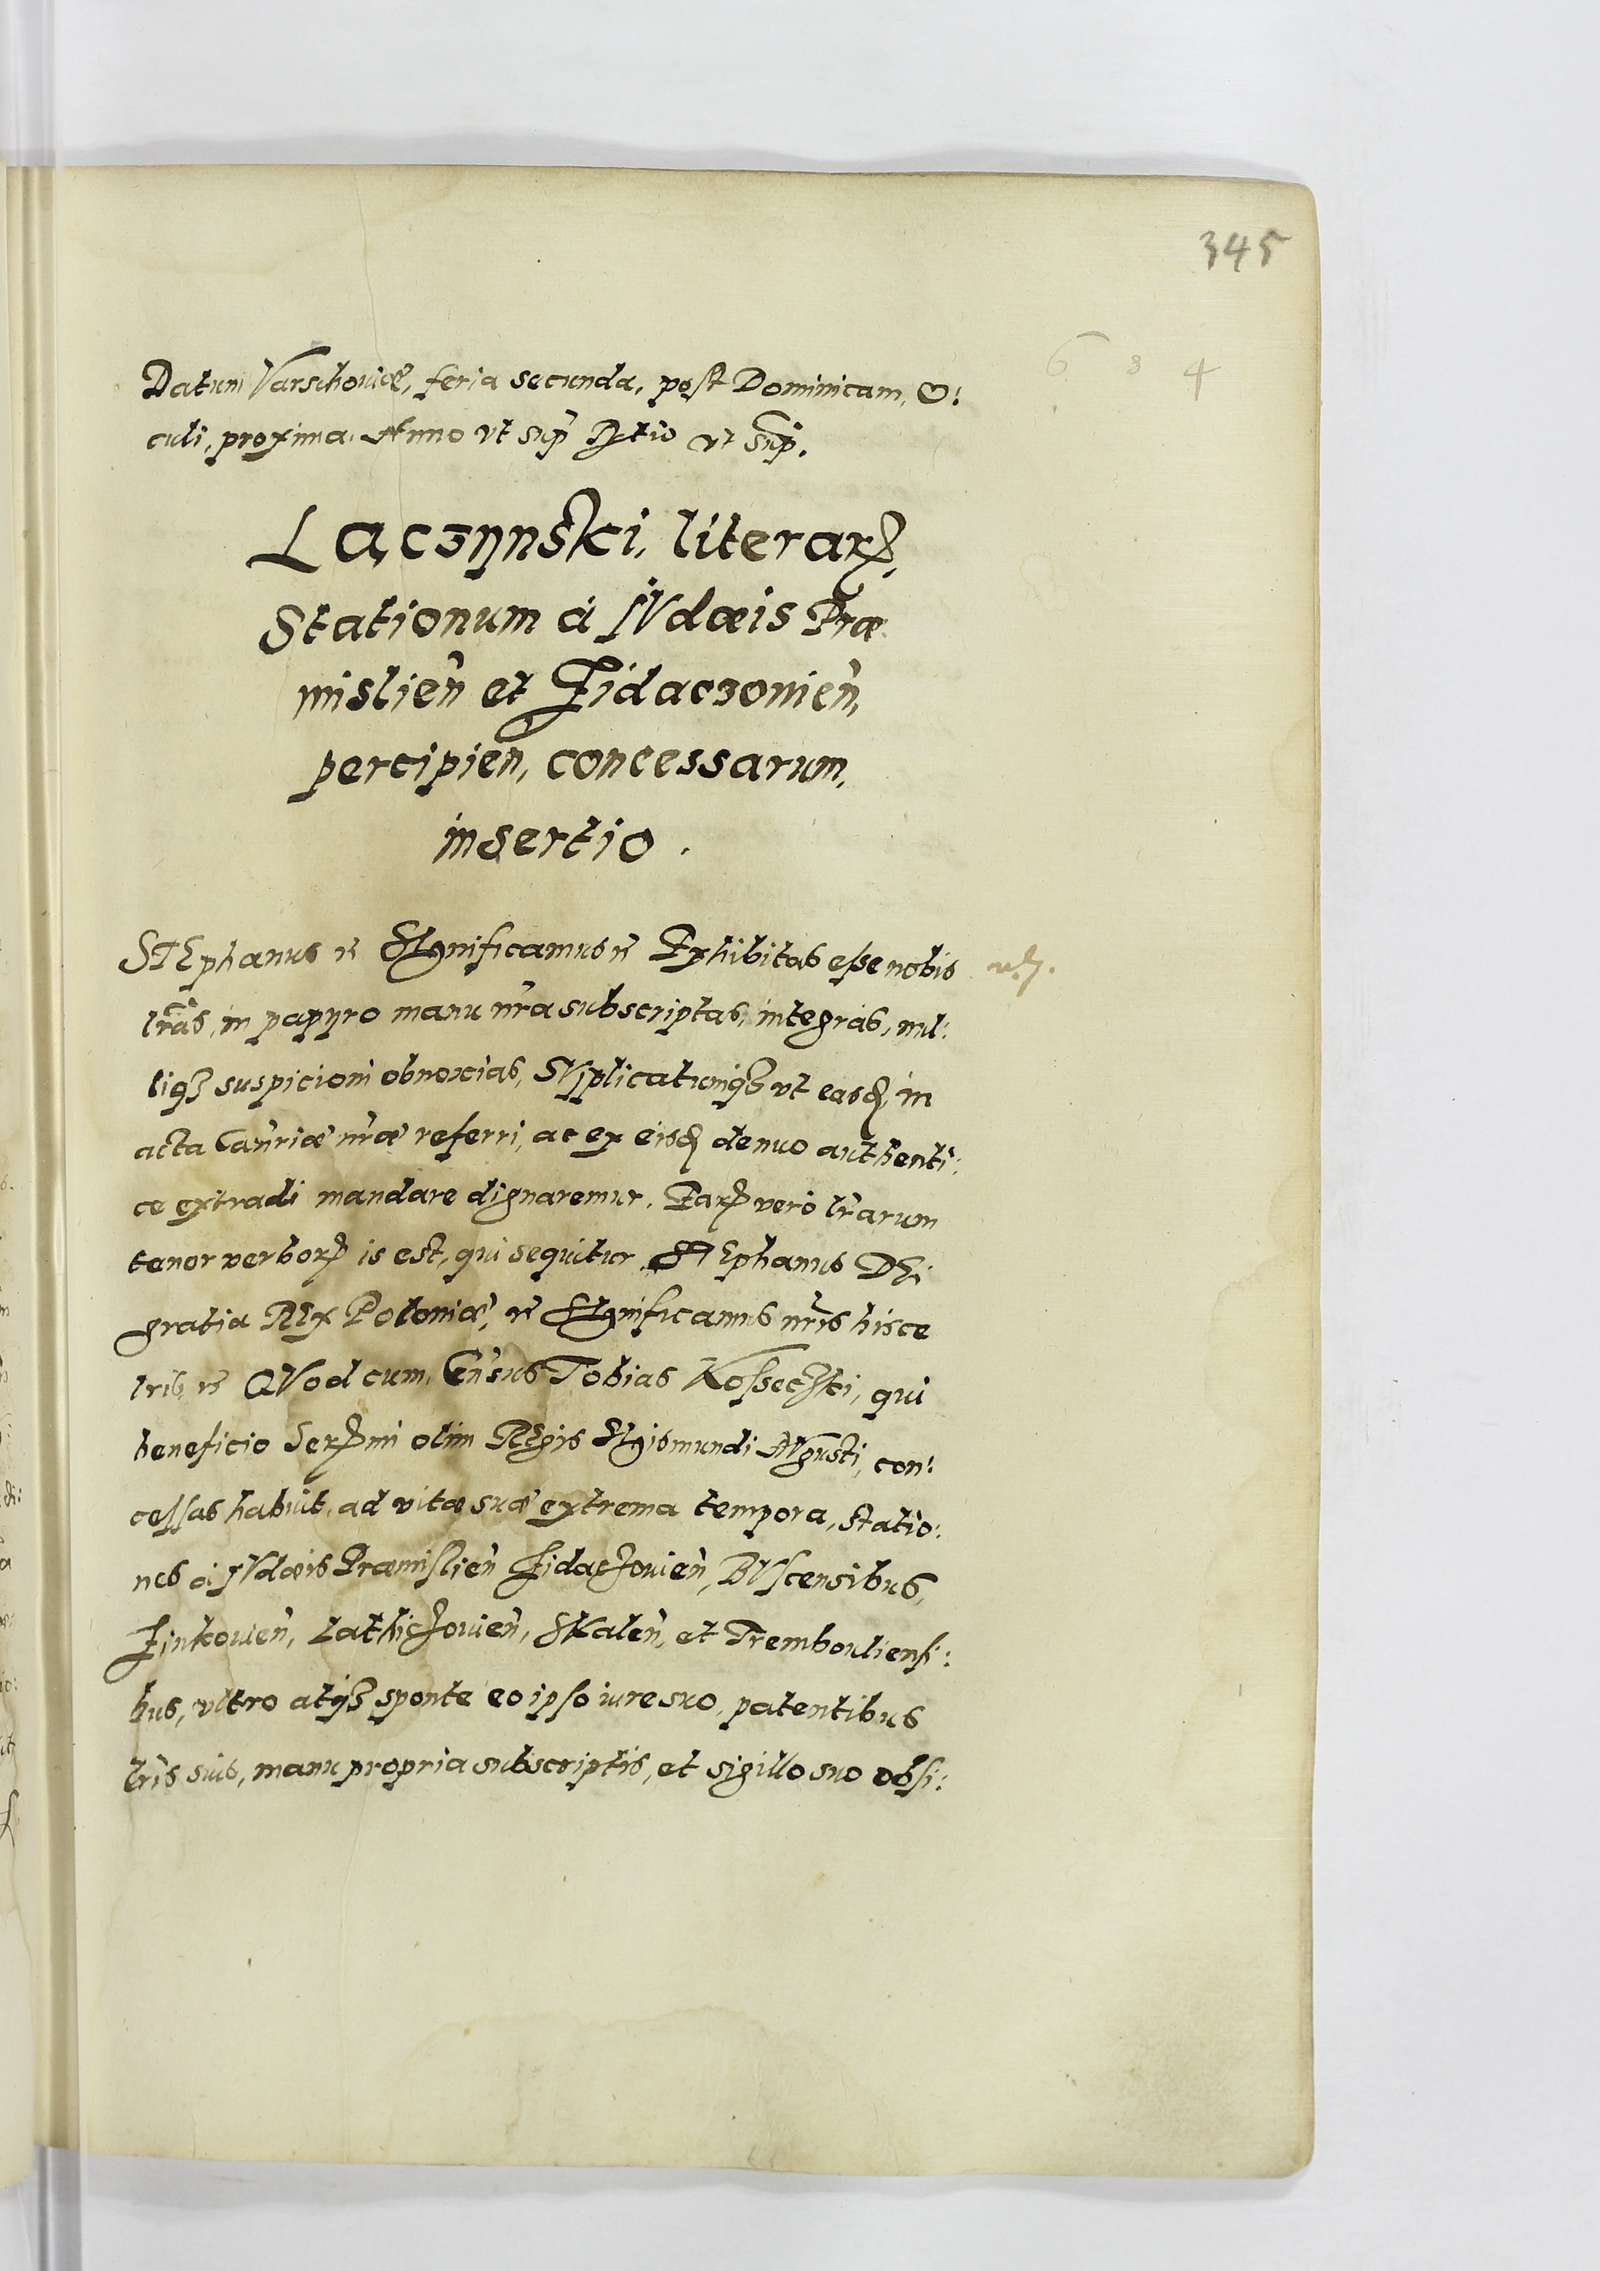 345
6 8 4
Datum Varschoviæ, feria secunda, post Dominicam, O:
culi, proxima. Anno vt sup̃ vt sup̃.
Łączynski, literarꝝ,
Stationum à IVdæis Præ
mislien̄ et Zidaczovien̄,
percipien, concessarum,
insertio.
STEphanus ꝛc̃ SIgnificamus ꝛc̃ Exhibitas esse nobis
lr̃as, in papyro manu nr̃a subscriptas, integras, nul:
liqꝫ suspicioni obnoxias, SVpplicatumqꝫ vt easd̃, in
acta Can̄riæ nr̃æ referri, ac ex eisd̃ denuo authenti:
ce extradi mandare dignaremur. Earꝝ vero lr̃arum
tenor verborꝝ is est, qui sequitur. STEphanus DEi
gratia REx Poloniæ, ꝛc̃ SIgnificamus nr̃is hisce
lrib, ꝛc̃ QVod cum, Gn̄sus Tobias Kosseczki, qui
beneficio Serꝝmi olim REgis SIgismundi AVgusti, con:
cessas habuit, ad vitæ suæ extrema tempora, statio:
nes à IVdæis Præmislien̄ Zidaczovien̄, BVscensibus,
Zinkovien̄, Lathiczovien̄, SKalen̄, et Trembouliensi:
bus, vltro atqꝫ sponte eo ipso iure suo, patentibus
lr̃is suis, manu propria subscriptis, et sigillo suo obsi: